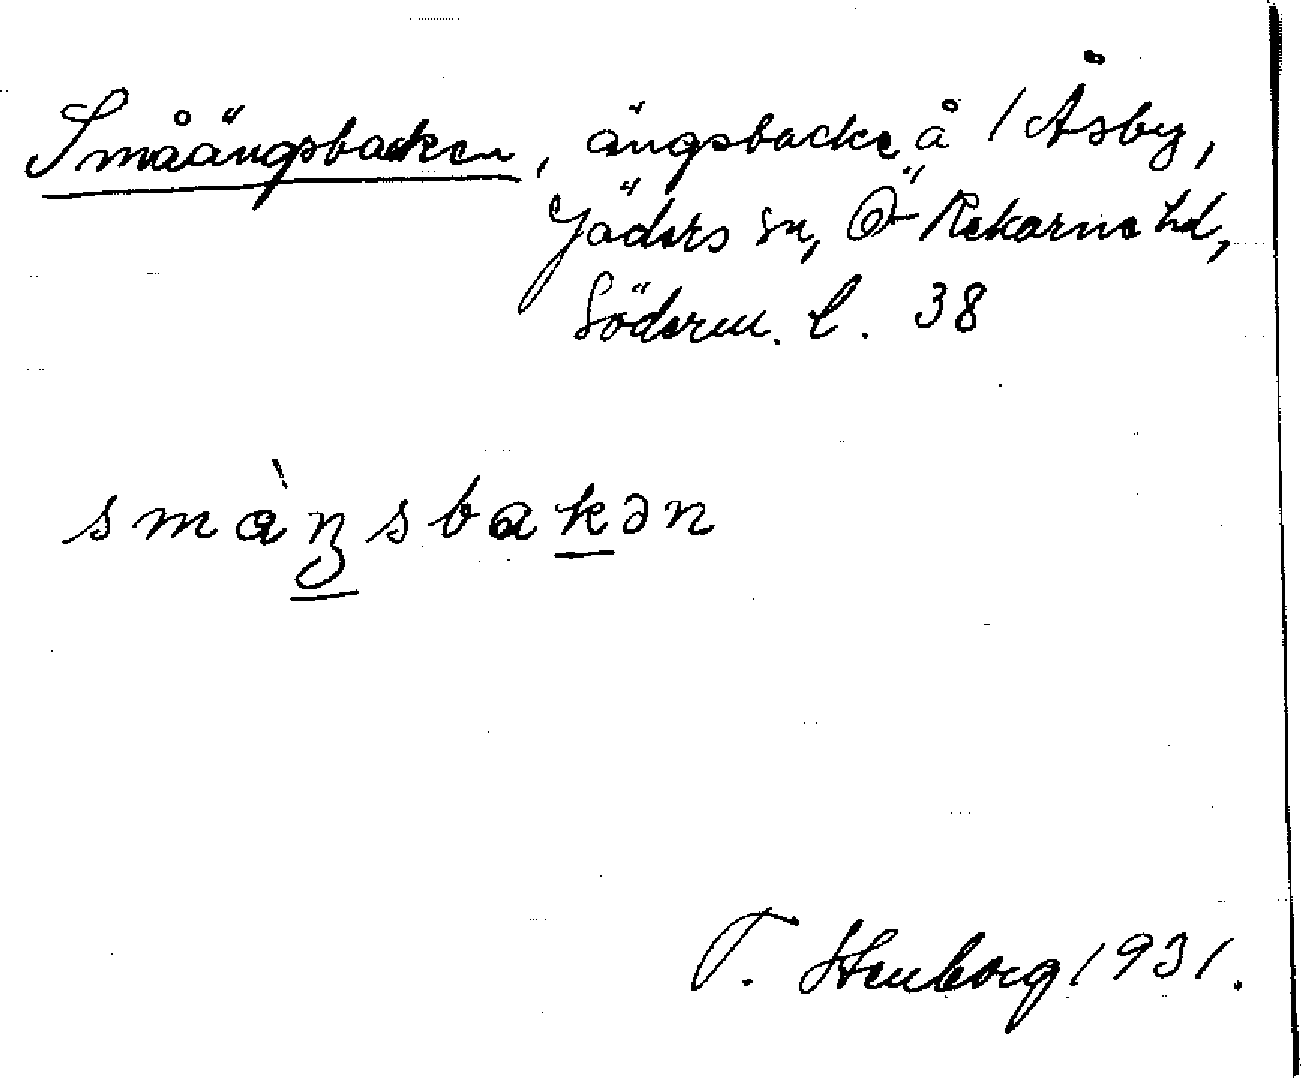 Småängsbacken, ängsbacke å / Åsby,
Jäders sn, Ö Rekarne hd,
Söderm. l. 38
smàŋsbakən
T. Stenborg 1931.